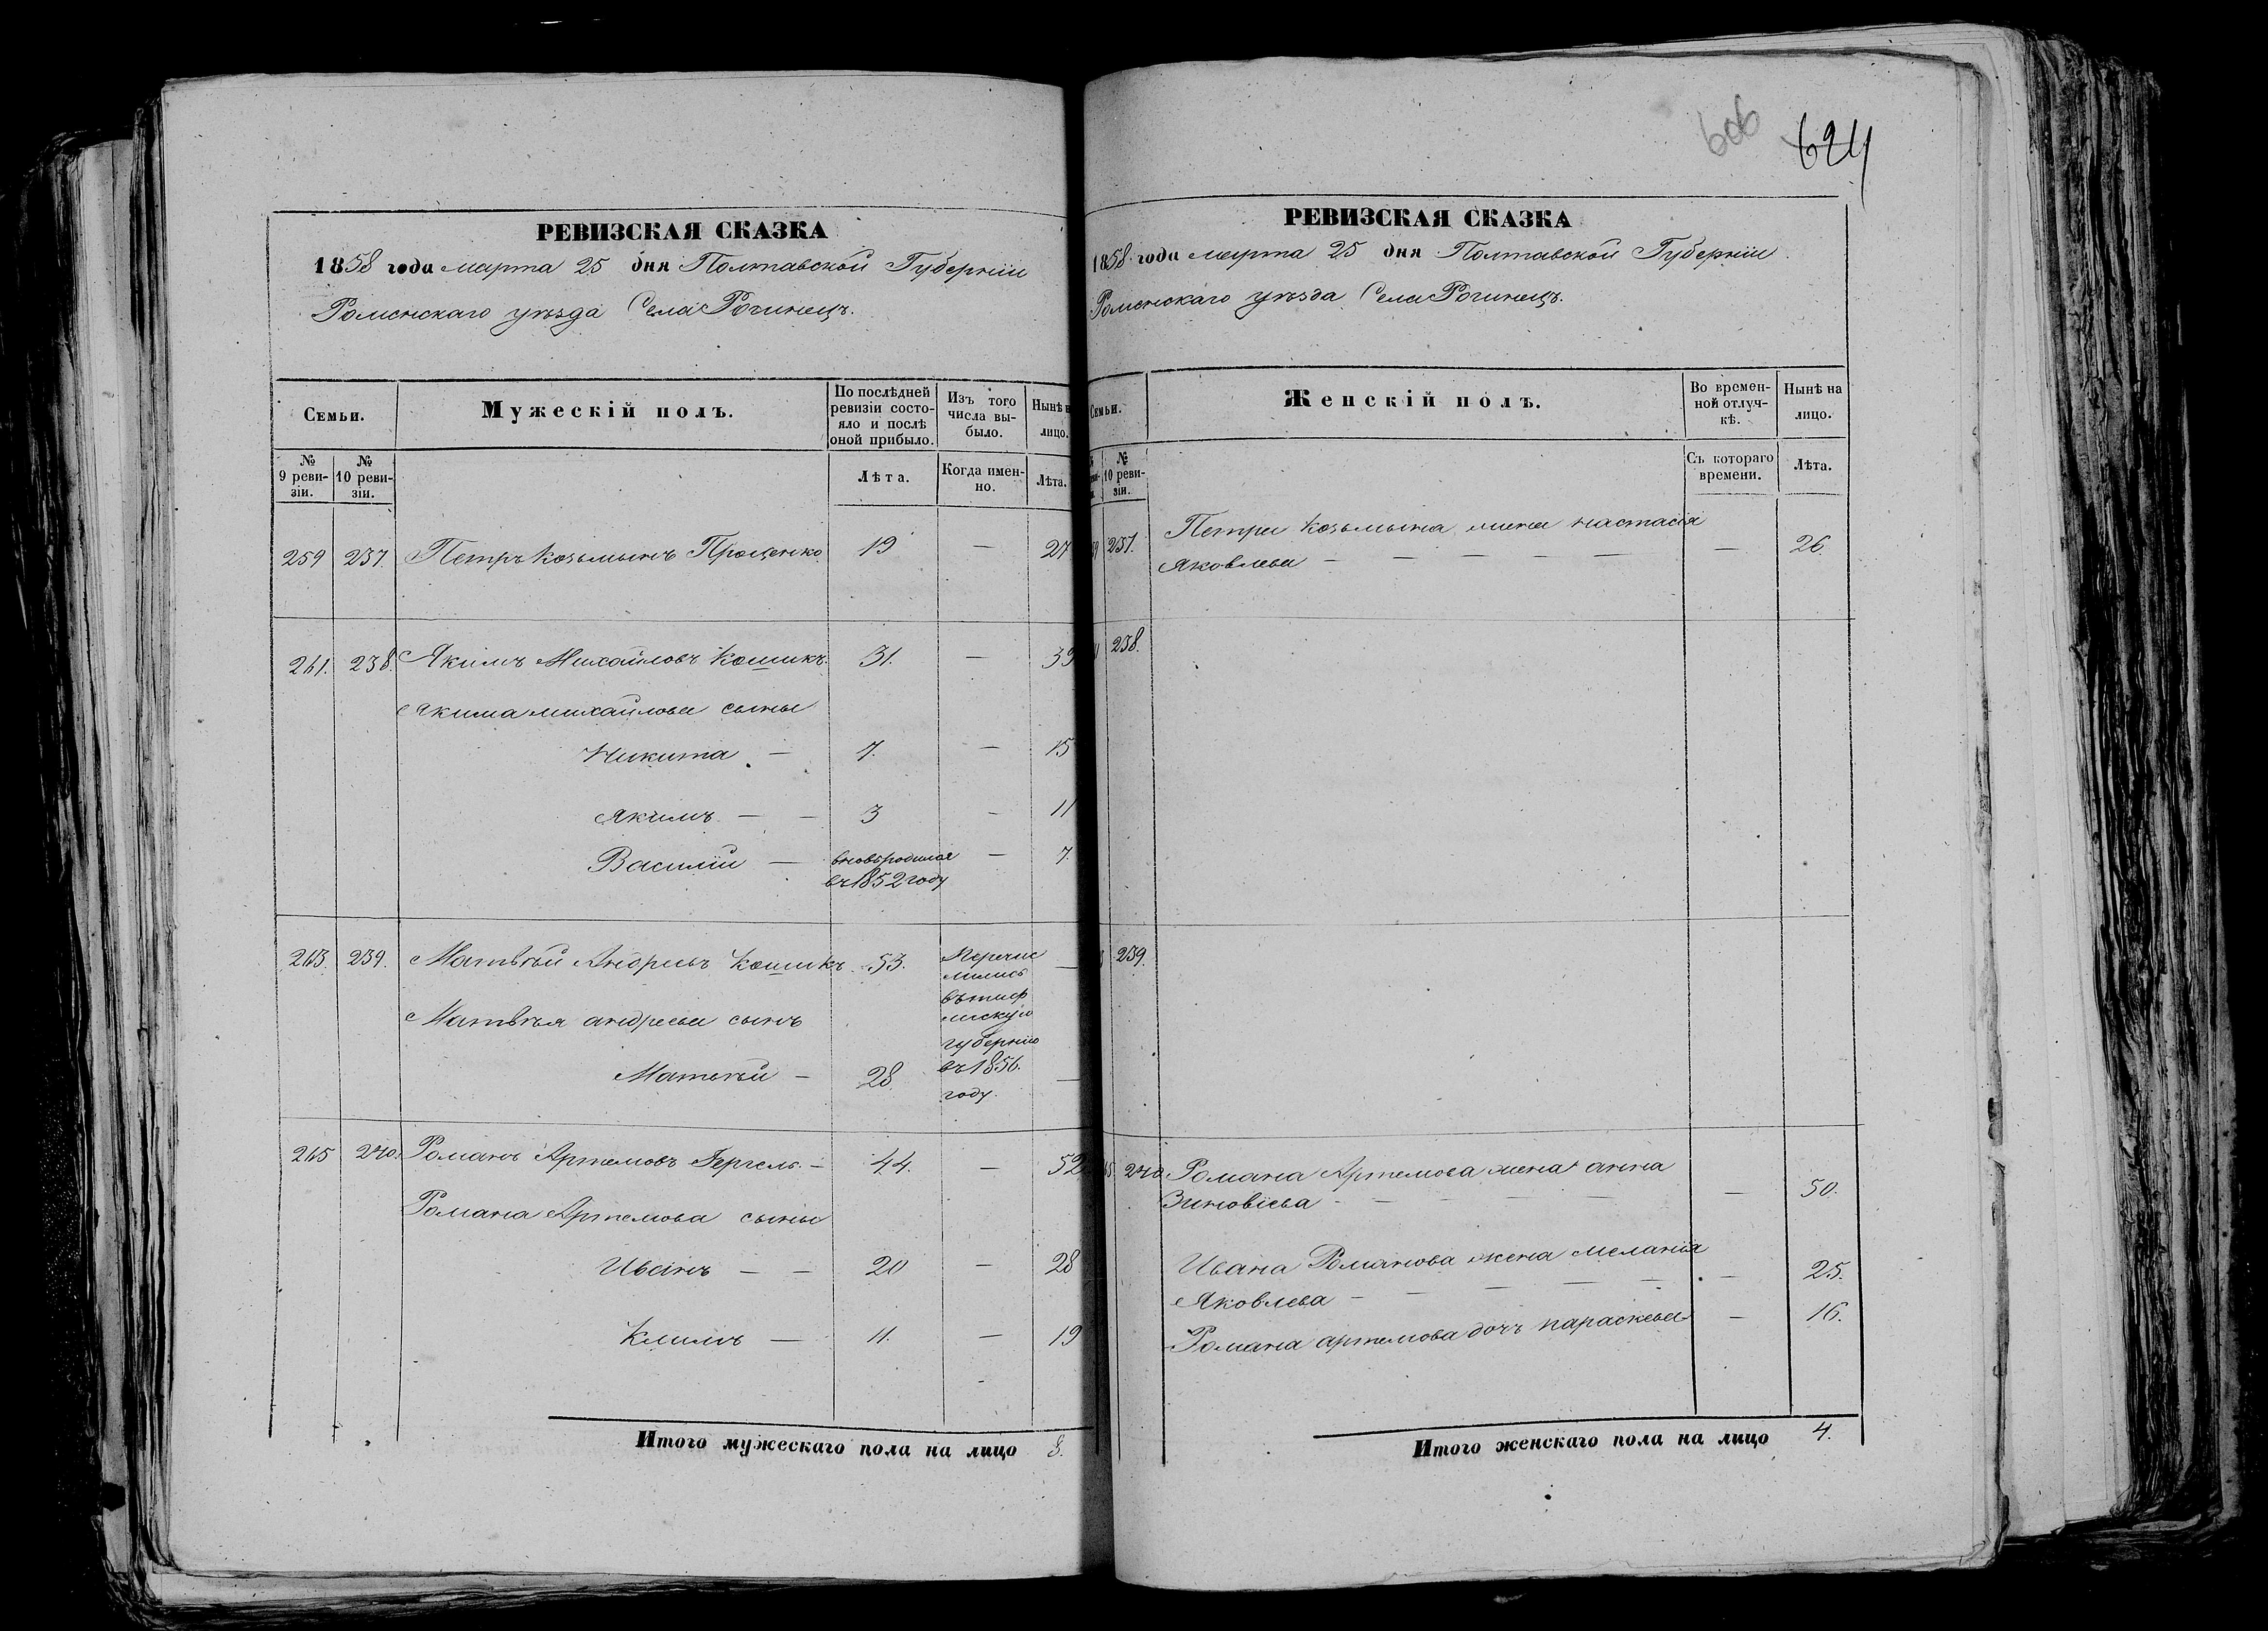 606
624
РЕВИЗСКАЯ СКАЗКА
1858 года марта 25 дня Полтавской Губерніи
Роменскаго уѣзда Села Рогинецъ.
Семьи.
Мужескій полъ.
По послѣдней ревизіи состояло и послѣ оной прибыло.
Изъ того числа выбыло.
Нынѣ н
лицо.
№ 9 ревизіи.
№ 10 ревизіи.
Лѣта.
Когда именно.
Лѣта.
259 237. Петръ Козьминъ Проценко 19 — 27
261. 238. Якимъ Михайловъ Кошикъ. 31. — 39
Якима михайлова сыны
Никита — 7. — 15
Якимъ — — 3 — 11
Василій — вновьродился въ 1852 году — 7.
263. 239. Матвѣй Андреевъ Кошикъ 53. Перечислились въ тифлискую губернію въ 1856. году. —
Матвѣя андреева сынъ
Матвѣй — 28. —
265 240. Романъ Артемовъ Гергель. — 44. — 52
Романа Артемова сыны
Иванъ — — 20 — 28
Климъ — 11. — 19
Итого мужескаго пола на лицо 8.
РЕВИЗСКАЯ СКАЗКА
1858. года марта 25 дня Полтавской Губерніи
Роменскаго уѣзда Села Рогинецъ.
Семьи.
Женскій полъ.
Во временной отлучкѣ.
Нынѣ на лицо.
№ 10 ревизіи.
Съ котораго времени.
Лѣта.
237. Петра Козьмина жена настасія
Яковлева — — — — — 26.
238.
239.
240 Романа Артемова жена анна
Зиновіева — — — — — 50.
Ивана Романова жена меланія
Яковлева — — — — — 25.
Романа артемова дочь параскева — 16.
Итого женскаго пола на лицо 4.